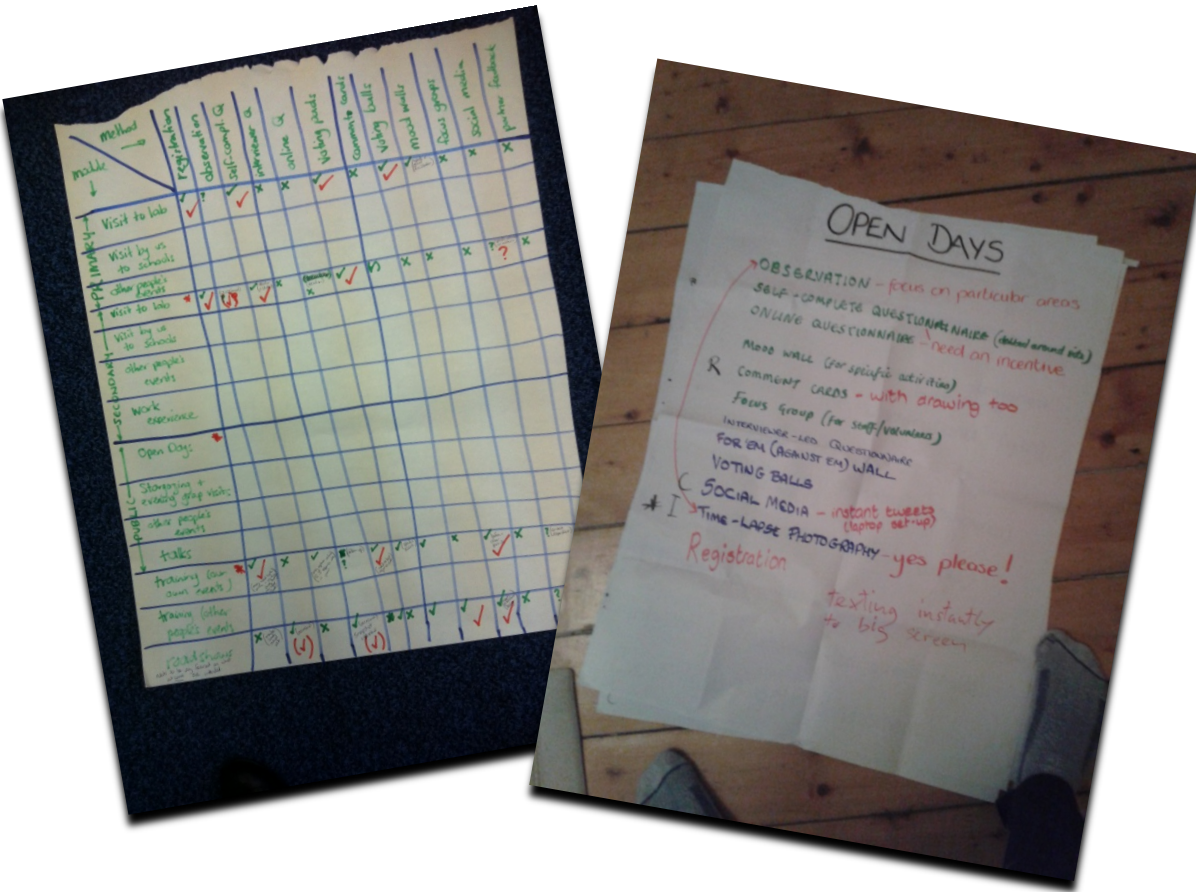 method
middle
registration
observation
self-compl. Q
interviewer Q
online Q
voting pads
comments cards
voting balls
mood walls
focus groups
social media
partner feedback
PRIMARY
Visit to lab
Visit by us
to schools
other people's
events
SECONDARY
Visit to lab
Visit by us
to schools
other people's
events
Work
experience
PUBLIC
Open Days
Stargazing +
group visits
other people's
events
talks
training (our
own events)
training (other
people's events
roadshows
OPEN DAYS
OBSERVATION - focus on particular areas
SELF-COMPLETE QUESTIONNAIRE (dotted around site)
ONLINE QUESTIONNAIRE - need an incentive
MOOD WALL (for specific activities)
R COMMENT CARDS - with drawing too
FOCUS GROUP (for staff/volunteers)
INTERVIEWER-LED QUESTIONNAIRE
FOR 'EM (AGAINST EM) WALL
VOTING BALLS
C SOCIAL MEDIA - instant tweets
(laptop set-up)
* I TIME-LAPSE PHOTOGRAPHY - yes please!
Registration
texting instantly
to big screen